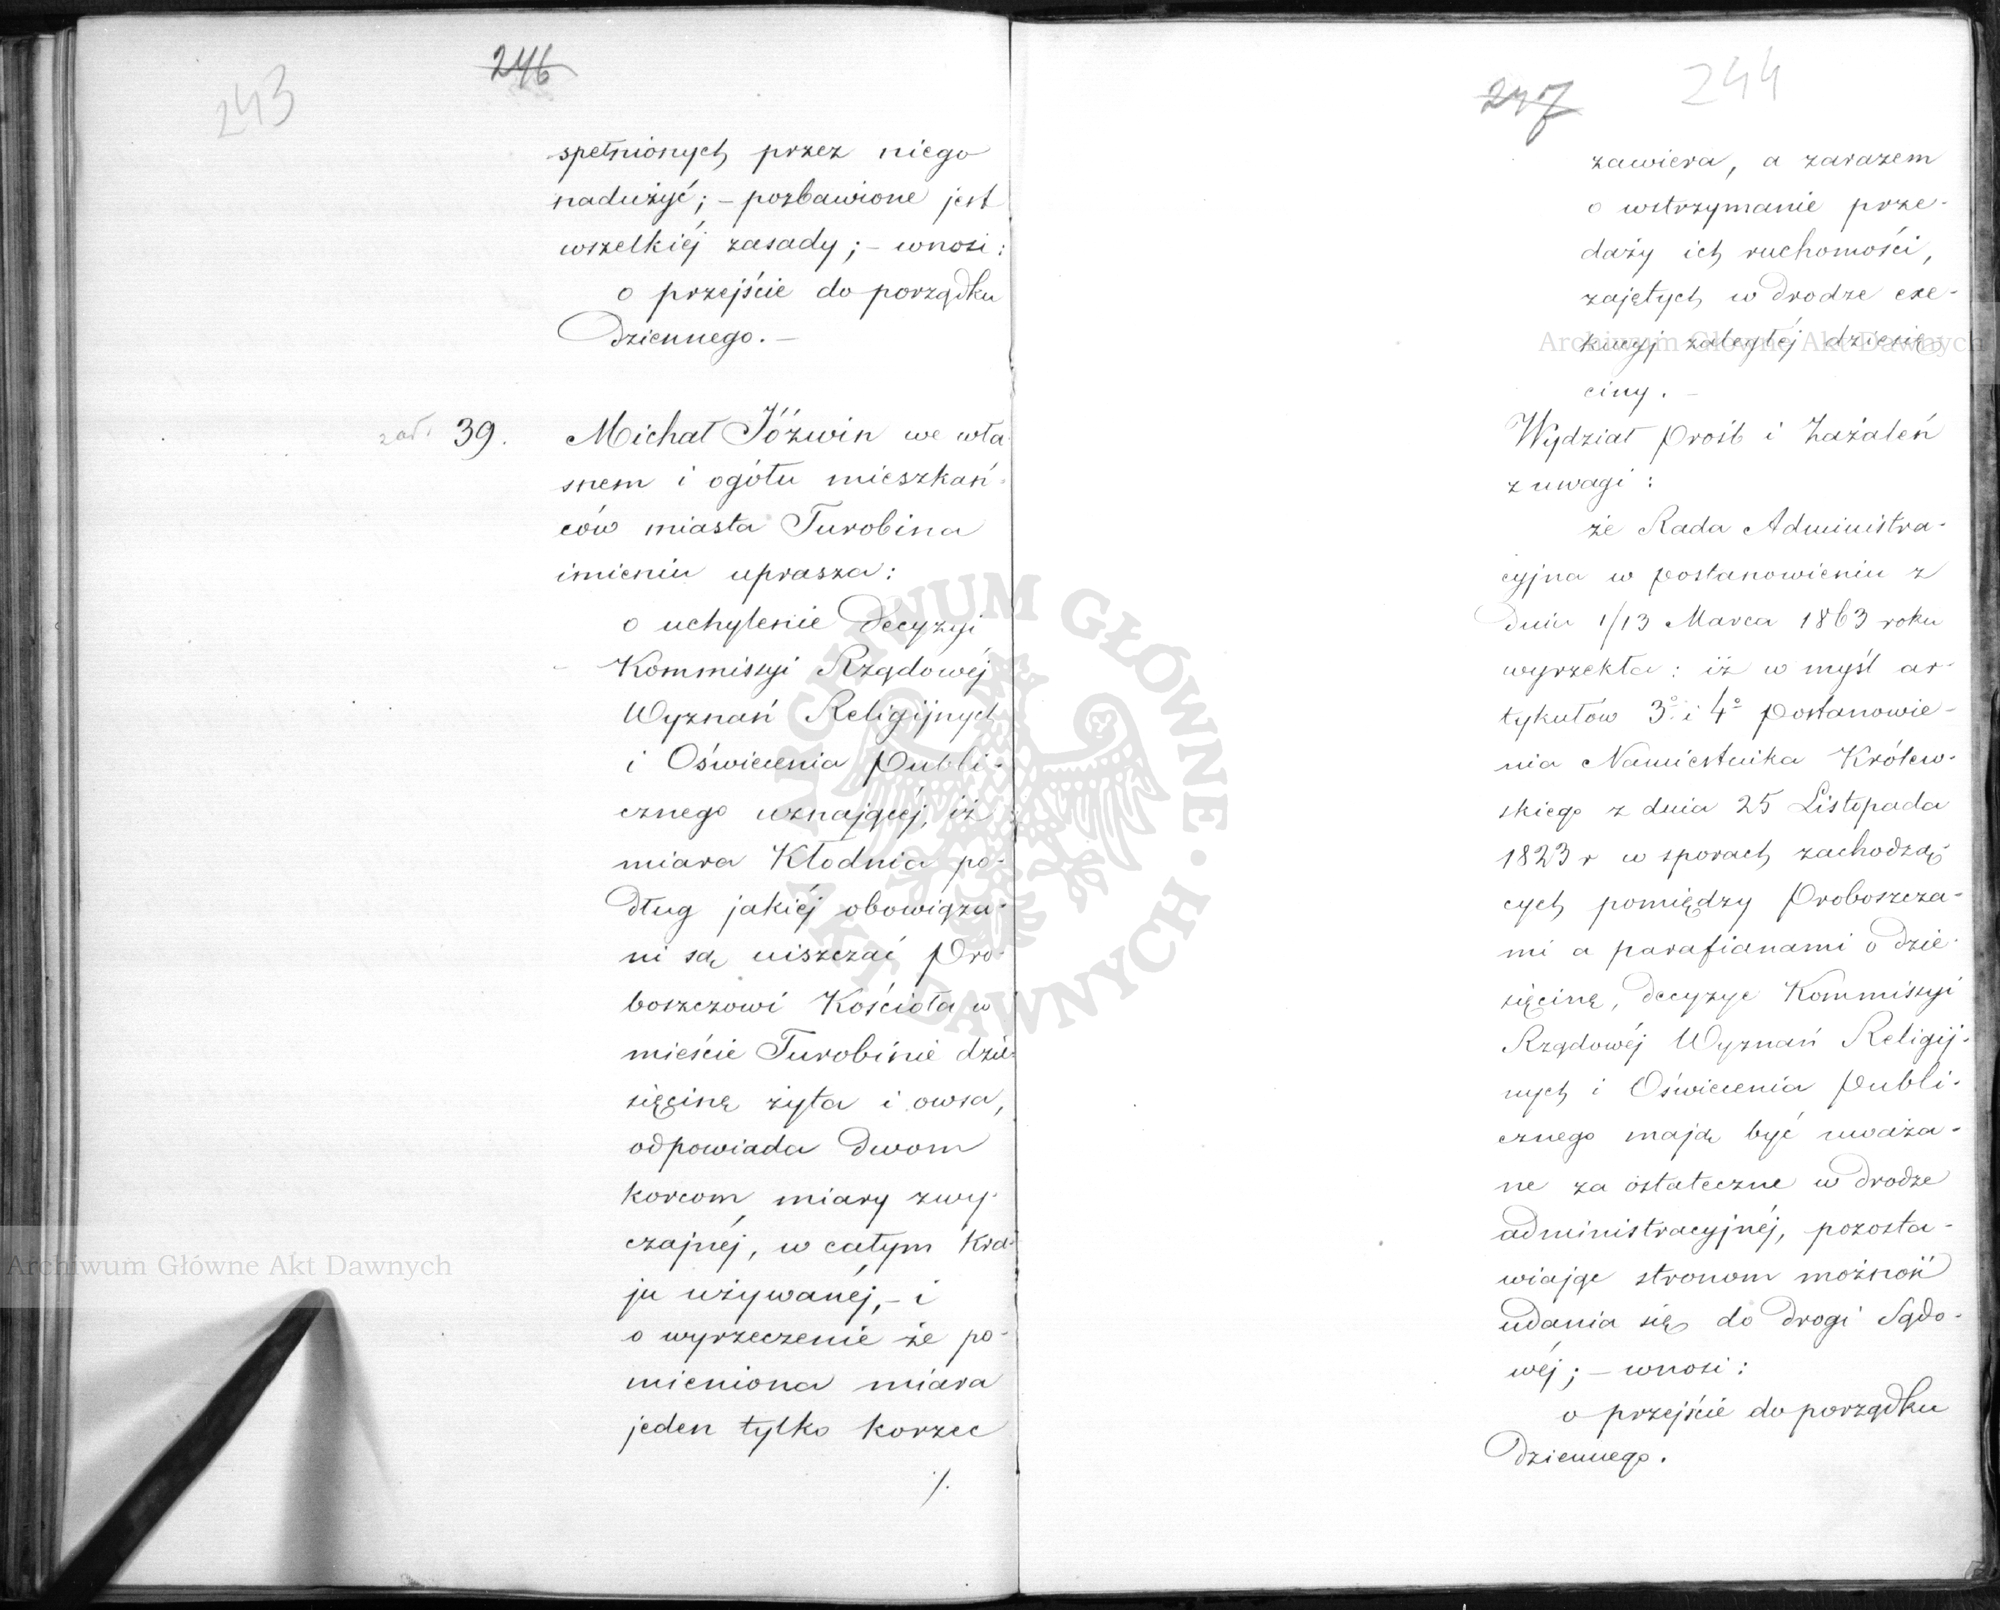 243
246
spełnionych przez niego
nadużyć; – pozbawione jest
wszelkiéj zasady; – wnosi:
o przejście do porządku
dziennego. –
zał. 39. Michał Jóźwin we wła-
snem i ogółu mieszkań-
ców miasta Turobina
imieniu uprasza:
o uchylenie decyzyi
Kommissyi Rządowéj
Wyznań Religijnych
i Oświecenia Publi-
cznego uznającéj, iż
miara Kłodnia po-
dług jakiéj obowiąza-
ni są uiszczać Pro-
boszczowi Kościoła w
mieście Turobinie dzie-
sięcinę żyta i owsa,
odpowiada dwom
korcom miary zwy-
czajnéj, w całym Kra-
ju używanéj, – i
o wyrzeczenie że po-
mieniona miara
jeden tylko korzec
./.
247
244
zawiera, a zarazem
o wstrzymanie prze-
daży ich ruchomości,
zajętych w drodze exe-
kucyj zaległéj dziesię-
ciny. –
Wydział Prośb i Zażaleń
z uwagi:
że Rada Administra-
cyjna w postanowieniu z
dnia 1/13 Marca 1863 roku
wyrzekła: iż w myśl ar-
tykułów 3º i 4º Postanowie-
nia Namiestnika Królew-
skiego z dnia 25 Listopada
1823 r w sporach zachodzą-
cych pomiędzy Proboszcza-
mi a parafianami o dzie-
sięcinę, decyzye Kommissyi
Rządowéj Wyznań Religij-
nych i Oświecenia Publi-
cznego mają być uważa-
ne za ostateczne w drodze
administracyjnéj, pozosta-
wiając stronom możność
udania się do drogi Sądo-
wéj; – wnosi:
o przejście do porządku
dziennego.
Archiwum Główne Akt Dawnych
ARCHIWUM GŁÓWNE AKT DAWNYCH
Archiwum Główne Akt Dawnych